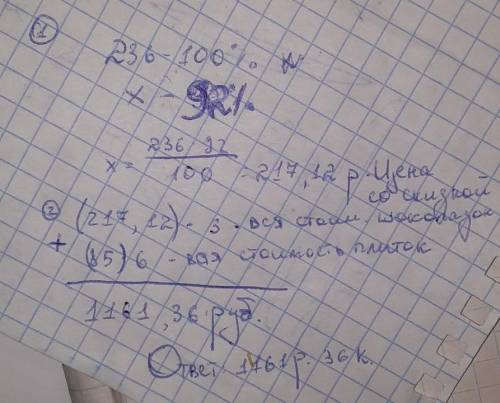 ①
236 - 100%
x - 92%
x = 236 · 92 / 100 - 217,12 р. Цена со скидкой
② (217,12) · 3 - вся стоим. шоколадок
+ (85) 6 - вся стоимость плиток
1161,36 руб.
Ответ 1161 р. 36 к.